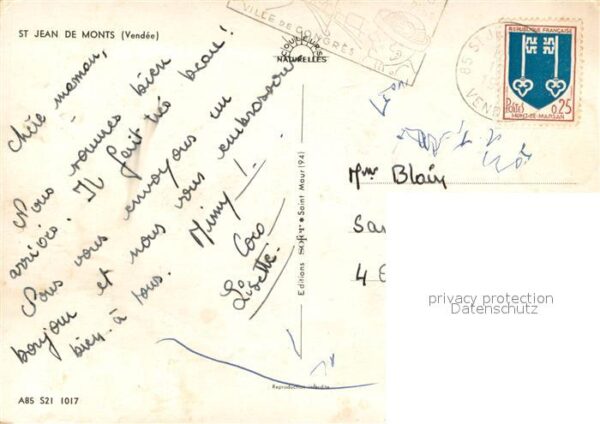 ST JEAN DE MONTS (Vendée)
Chère maman,
Nous sommes bien
arrivés. Il fait très beau!
Nous vous envoyons un
bonjour et nous vous embrassons
bien à tous. Mimy!
Coco
Lisette
COULEURS
NATURELLES
Editions Saint Maur (94)
Reproduction interdite
A85 S21 1017
VILLE DE CONGRES
85 ST JE
VEND
REPUBLIQUE FRANÇAISE
POSTES 0,25
MONT-DE-MARSAN
Mme Blain
Sa
4 E
privacy protection
Datenschutz